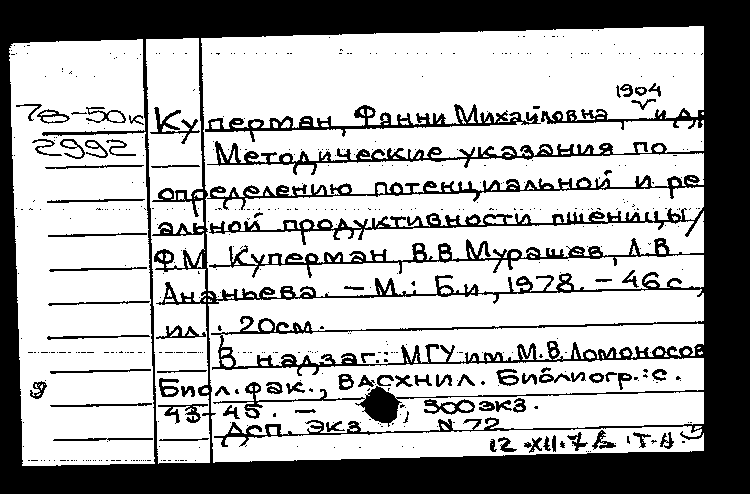 1904
78-50к Куперман, Фанни Михайловна, и др
2992 Методические указания по
определению потенциальной и ре
альной продуктивности пшеницы/
Ф.М. Куперман, В.В. Мурашев, Л.В.
Ананьева. — М.: Б.и., 1978. — 46 с.,
ил.; 20см.
В надзаг.: МГУ им. М.В. Ломоносов
Биол. фак., ВАСХНИЛ. Библиогр.: с.
43-45. — 300 экз.
Дсп. Экз. N 72
12.XII.7